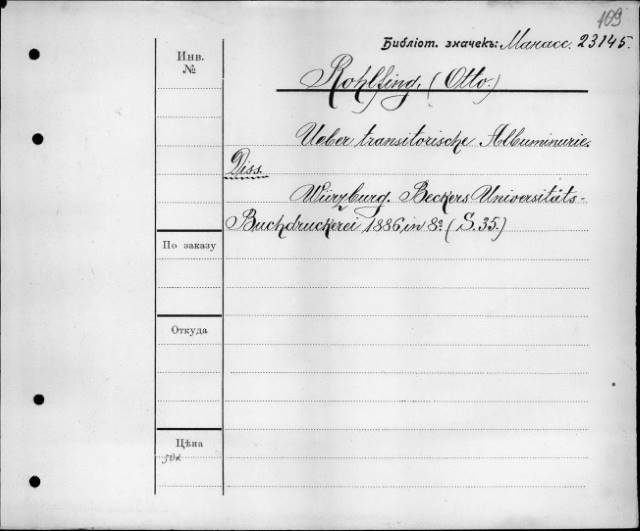 109
Библіот. значекъ: Манасс. 23145.
Инв.
№
Rohlfing, (Otto.)
Ueber transitorische Albuminurie.
Diss.
Würzburg. Beckers Universitäts-
Buchdruckerei, 1886, in 8º. (S. 35.)
По заказу
Откуда
Цѣна